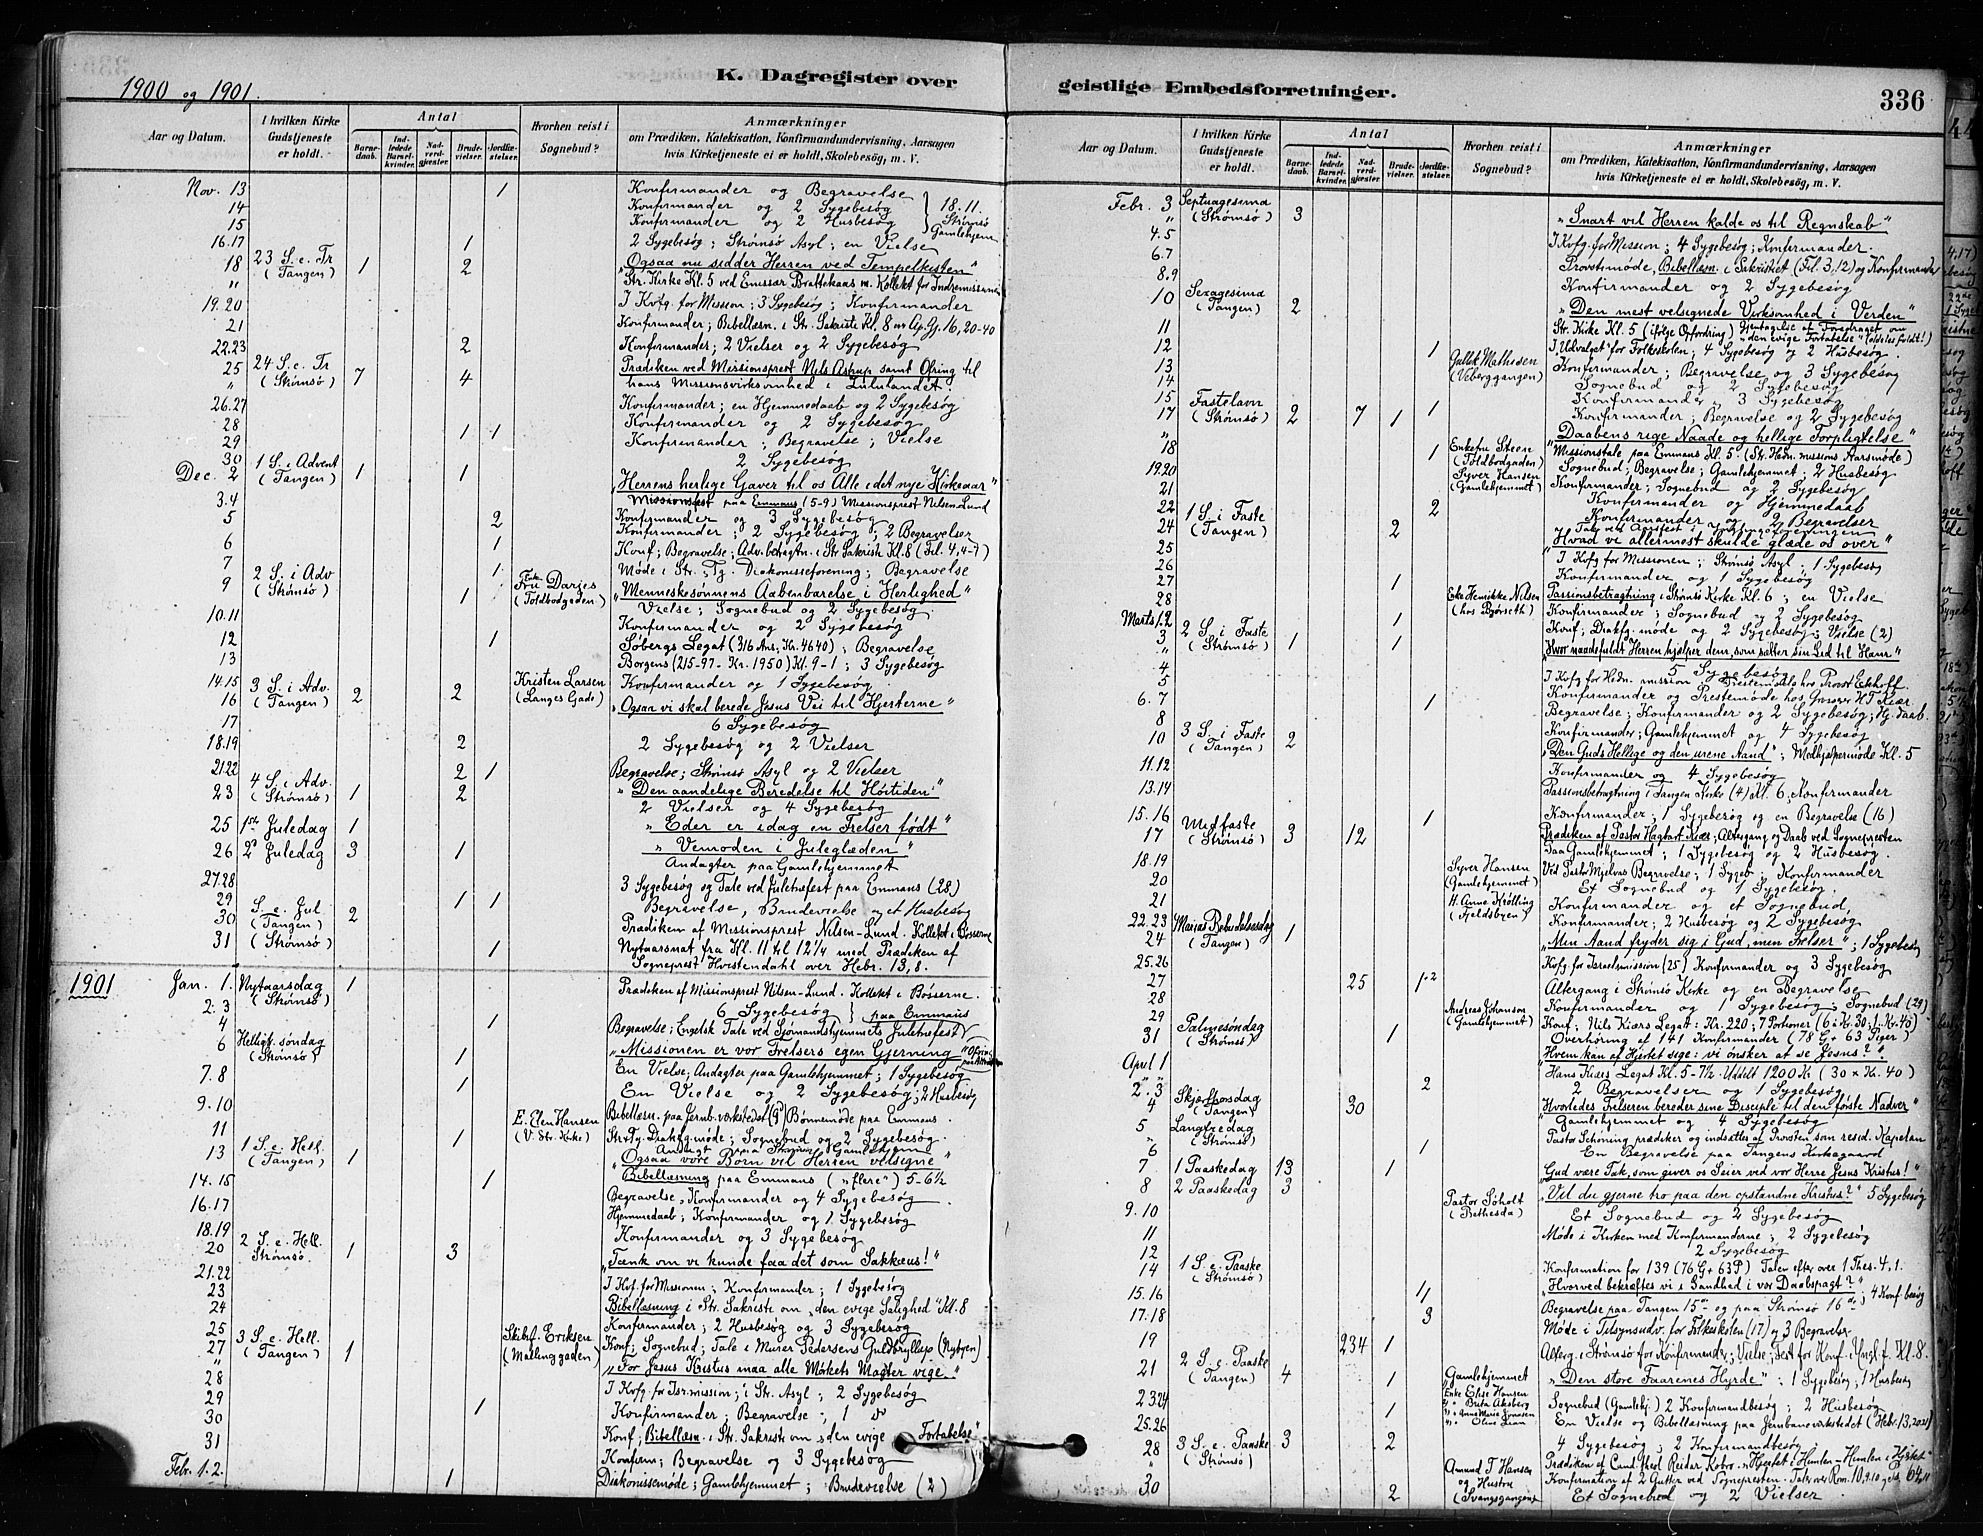 1900 og 1901.
K. Dagregister over
Aar og Datum.
I hvilken Kirke Gudstjeneste er holdt.
Antal
Barnedaab.
Indledede Barselkvinder.
Nadverdgjester.
Brudevielser.
Jordfæstelser.
Hvorhen reist i Sognebud?
Anmærkninger
om Prædiken, Katekisation, Konfirmandundervisning, Aarsagen
hvis Kirketjeneste ei er holdt, Skolebesøg, m. V.
Nov. 13 1 Konfirmander og Begravelse
14 Konfirmander og 2 Sygebesøg } 18.11. Strømsø Gamlehjem
15 Konfirmander og 2 Husbesøg
16.17 1 2 Sygebesøg; Strømsø Asyl; en Vielse
18 23 S. e. Tr (Tangen) 1 2 "Ogsaa nu sidder Herren ved Tempelkisten"
" Str. Kirke Kl. 5 ved Emissær Brattekaas m. Kollekt for Indremissionen
19.20 I Kvfg. for Mission; 3 Sygebesøg; Konfirmander
21 Konfirmander; Bibellæsn. i Str. Sakristi Kl. 8 Ap. Gj. 16, 20-40
22.23 2 Konfirmander; 2 Vielser og 2 Sygebesøg
25 24 S. e. Tr (Strømsø) 7 4 Prædiken ved Missionsprest Nils Astrup samt Ofring til
" hans Missionsvirksomhed i Zululandet.
26.27 Konfirmander; en Hjemmedaab og 2 Sygebesøg
28 Konfirmander og 2 Sygebesøg
29 1 1 Konfirmander; Begravelse; Vielse
30 2 Sygebesøg
Dec. 2 1 S. i Advent (Tangen) 1 1 "Herrens herlige Gaver til os Alle i det nye Kirkeaar"
3.4 Missionsfest paa Emmaus (5-9) Missionsprest Nilsen-Lund
5 2 Konfirmander og 3 Sygebesøg
Konfirmander; 2 Sygebesøg; 2 Begravelser
6 1 Konf; Begravelse; Adv. betragtn. i Str Sakristi Kl. 8 (Fil. 4, 4-7)
7 1 Møde i Str. Tg. Diakonisseforening; Begravelse
9 2 S. i Adv (Strømsø) 1 Enkefru Darjes (Toldbodgaden) "Menneskesønnens Aabenbarelse i Herlighed"
Vielse; Sognebud og 2 Sygebesøg.
10.11 Konfirmander og 2 Sygebesøg
12 1 Søbergs Legat (316 Ans; Kr. 4640); Begravelse
13 Borgens (215-97- Kr. 1950) Kl. 9-1; 3 Sygebesøg
14.15 Kristen Larsen (Langes Gade) Konfirmander og 1 Sygebesøg
16 3 S. i Adv. (Tangen) 2 2 "Ogsaa vi skal berede Jesus Vei til Hjerterne"
17 6 Sygebesøg
18.19 2 2 Sygebesøg og 2 Vielser
21.22 2 1 Begravelse; Strømsø Asyl og 2 Vielser
23 4 S. i Adv. (Strømsø) 1 2 "Den aandelige Beredelse til Høitiden"
2 Vielser og 4 Sygebesøg
25 1ste Juledag 1 "Eder er idag en Frelser født"
26 2. Juledag 3 1 "Vemoden i Juleglæden"
Andagter paa Gamlehjemmet
27.28 3 Sygebesøg og Tale ved Juletræfest paa Emmaus (28.)
29 1 1 Begravelse, Brudevielse og et Husbesøg
30 S. e. Jul (Tangen) 2 Prædiken af Missionsprest Nilsen-Lund. Kollekt i Bøsserne
31 (Strømsø) 1 Nytaarsnat fra Kl. 11 til 12 1/4 med Prædiken af
Sogneprest Hvistendahl over Hebr. 13, 8.
1901 Jan. 1. Nytaarsdag (Strømsø) 1 Prædiken af Missionsprest Nilsen-Lund. Kollekt i Bøsserne.
2. 3 6 Sygebesøg } paa Emmaus
4 1 Begravelse; Engelsk Tale ved Sjømandshjemmets Juletræfest
6 Hellig. søndag (Strømsø) 1 "Missionen er vor Frelsers egen Gjerning"
7. 8 1 En Vielse; Andagter paa Gamlehjemmet; 1 Sygebesøg
9. 10 En Vielse og 2 Sygebesøg; 2 Husbesøg
11 E. Elen Hansen (V. Str. Kirke) Bibellæsn. paa Jernb. værkstedet (9) Bønnemøde paa Emmaus.
1 Str + Tg. Diakfg. møde; Sognebud og 2 Sygebesøg.
13 1 S. e. Hell. (Tangen) 1 "Ogsaa vore Børn vil Herren velsigne"
14. 15 1 Bibellæsning paa Emmaus ("flere") 5-6½
16.17 Begravelse, Konfirmander og 4 Sygebesøg
Hjemmedaab; Konfirmander og 1 Sygebesøg
18.19 Konfirmander og 3 Sygebesøg
20 2 S. e. Hell. Strømsø 1 3 "Tænk om vi kunde faa det som Sakkæus!"
21.22
23 I Kvf. for Missionen; Konfirmander; 1 Sygebesøg
24 Bibellæsning i Str. Sakristi om "den evige Salighed" Kl. 8
25 Konfirmander; 2 Husbesøg og 3 Sygebesøg
27 3 S. e. Hell. (Tangen) 1 Skibsf. Eriksen (Mallinggaden) Konf; Sognebud; Tale i Murer Pedersens Guldbryllup (Nybyen)
" "For Jesus Kristus maa alle Mørkets Magter vige."
28 I Kvfg. for Isr. mission; i Str. Asyl; 2 Sygebesøg
29 1 Konfirmander; Begravelse; 1 do
30
31 Konf; Bibellæsn. i Str. Sakristi om "den evige Fortabelse"
Konfirm; Begravelse og 3 Sygebesøg
Febr. 1.2. 1 Diakonissemøde; Gamlehjemmet; Brudevielse (2)
geistlige Embedsforretninger.
336
Aar og Datum.
I hvilken Kirke Gudstjeneste er holdt.
Antal
Barnedaab.
Indledede Barselkvinder.
Nadverdgjester.
Brudevielser.
Jordfæstelser.
Hvorhen reist i Sognebud?
Anmærkninger
om Prædiken, Katekisation, Konfirmandundervisning, Aarsagen
hvis Kirketjeneste ei er holdt, Skolebesøg, m. V.
Febr. 3 Septuagesima (Strømsø) 3 "Snart vil Herren kalde os til Regnskab"
4.5 I Kvfg. for Mission; 4 Sygebesøg; Konfirmander.
6.7 Provstimøde, Bibellæsn. i Sakristiet (Fil. 3, 12) og Konfirmander
8.9 Konfirmander og 2 Sygebesøg
10 Sexagesima (Tangen) 2 "Den mest velsignede Virksomhed i Verden"
11 Str. Kirke Kl. 5 (ifølge Opfordring) Gjentagelse af Foredraget om "den evige Fortabelse"
12 1 I Udvalget for Folkeskolen; 4 Sygebesøg og 2 Husbesøg.
13 Gullik Mathisen (Veberggangen) Konfirmander; Begravelse og 3 Sygebesøg
14 Sognebud og 2 Sygebesøg
15 1 Konfirmander, 3 Sygebesøg
17 Fastelavn (Strømsø) 2 7 1 Konfirmander; Begravelse og 2 Sygebesøg
" "Daabens rige Naade og hellige Forpligtelse"
18 1 Enkefru Steen (Toldbodgaden) Missionstale paa Emmaus Kl. 5 (Str. Hedn. missions Aarsmøde)
19.20 Syver Hansen (Gamlehjemmet) Sognebud; Begravelse; Gamlehjemmet. 2 Husbesøg
21 Konfirmander; Sognebud og 2 Sygebesøg
22 2 Konfirmander og Hjemmedaab
24 1 S. i Faste (Tangen) 2 Konfirmander og 2 Begravelser
"Hvad vi allermest skulde glæde os over"
25 I Kvfg for Missionen; Strømsø Asyl; 1 Sygebesøg
26 Konfirmander og 1 Sygebesøg
27 1 Passionsbetragtning i Strømsø Kirke Kl. 6; en Vielse
28 Enke Henrikke Nilsen (hos Bjørseth) Konfirmander; Sognebud og 2 Sygebesøg
Marts 1.2 1 Konf; Diakfg. møde og 2 Sygebesøg; Vielse (2)
3 2 S. i Faste (Strømsø) 1 1 "Hvor naadefuldt Herren hjælper dem, som sætter sin Lid til Ham"
4 5 Sygebesøg
5 I Kvfg for Hedn. mission; Prestemøde hos Provst Eckhoff.
6. 7 1 Konfirmander og Prestemøde hos Grosser H T Kiær
8 Begravelse; Konfirmander og 2 Sygebesøg; Hj. daab.
10 3 S. i Faste (Tangen) 2 Konfirmander; Gamlehjemmet og 4 Sygebesøg
"Den Guds Hellige og den urene Aand"; Medhjælpermøde Kl. 5
11.12 Konfirmander og 4 Sygebesøg
13.14 Passionsbetragtning i Tangen Kirke (4) Kl. 6, Konfirmander
15. 16 1 Konfirmander; 1 Sygebesøg og en Begravelse (16)
17 Midfaste (Strømsø) 3 12 Prædiken af Pastor Hagbart Kiær; Altergang og Daab ved Sognepresten
18.19 Paa Gamlehjemmet; 1 Sygebesøg og 2 Husbesøg.
20 Syver Hansen (Gamlehjemmet) Ved Pastor Mjelvas Begravelse; 1 Sygeb. Konfirmander
Et Sognebud og 1 Sygebesøg.
21 H. Anne Krølling (Fjeldsbyen) Konfirmander og et Sognebud,
22.23 Konfirmander; 2 Husbesøg og 2 Sygebesøg
24 Mariæ Bebudelsesdag (Tangen) 1 "Min Aand fryder sig i Gud, min Frelser"; 1 Sygebesøg
25.26 Kvfg for Israelsmission (25) Konfirmander og 3 Sygebesøg
27 25 Altergang i Strømsø Kirke og en Begravelse
28 Andreas Johnson (Gamlehjemmet) Konfirmander og 1 Sygebesøg; Sognebud (29)
29 Konf; Nils Kiærs Legat: Kr. 220; 7 Portioner (6 à Kr. 30; 1 Kr. 40)
31 Palmesøndag (Strømsø) 1 Overhøring af 141 Konfirmander (78 G + 63 Piger)
"Hvem kan af Hjertet sige: vi ønsker at se Jesus?"
April 1 Hans Kiærs Legat Kl. 5-7½. Uddelt 1200 Kr (30 x Kr. 40)
2. 3 2 2 Begravelser og 1 Sygebesøg
4 Skjærtorsdag (Tangen) 30 "Hvorledes Frelseren bereder sine Disciple til den første Nadver"
Gamlehjemmet og 4 Sygebesøg
5 Langfredag (Strømsø) Pastor Schøning prædiker og indsættes af Provsten som resid. Kapelan
6 1 En Begravelse paa Tangens Kirkegaard
7 1 Paaskedag 13 1 "Gud være Tak, som giver os Seier ved vor Herre Jesus Kristus!"
8 2 Paaskedag 3 "Vil du gjerne tro paa den opstandne Kristus?" 5 Sygebesøg
9. 10 Pastor Søholt (Bethesda) Et Sognebud og 2 Sygebesøg
11 Møde i Kirken med Konfirmanderne; 2 Sygebesøg
12 2 Sygebesøg
14 1 S. e. Paaske (Strømsø) Konfirmation for 139 (76 G + 63 P) Talen efter over 1 Thes. 4, 1.
"Hvorved bekræftes vi i Sandhed i vor Daabspagt?"; 4 Konf besøg
15. 16 Begravelse paa Tangen 15de og paa Strømsø 16de
17.18 3 Møde i Tilsynsudv. for Folkeskolen (17) og 3 Begravelser
19 234 1 Alterg. i Strømsø for Konfirmander; Vielse; Fest for Konf. i Yngl. f. Kl. 8.
21 2 S. e. Paaske (Tangen) 4 1 Gamlehjemmet "Den store Faarenes Hyrde"; 1 Sygebesøg; 1 Husbesøg
23.24 1 Enke Elise Hansen Sognebud (Gamlehj.) 2 Konfirmandbesøg; 2 Husbesøg
25.26 En Vielse og Bibellæsning paa Jernbaneværkstedet (Hebr. 13, 20.21)
4 Sygebesøg; 2 Konfirmandbesøg
28 3 S. e. Paaske (Strømsø) 3 2 Prædiken af Cand. theol. Reidar Kobro "Hjertet i Himlen - Himlen i Hjertet"
Amund T Hansen og Hustru (Svangsgangen) Konfirmation af 2 Gutter ved Sognepresten.
30 2 Et Sognebud og 2 Vielser